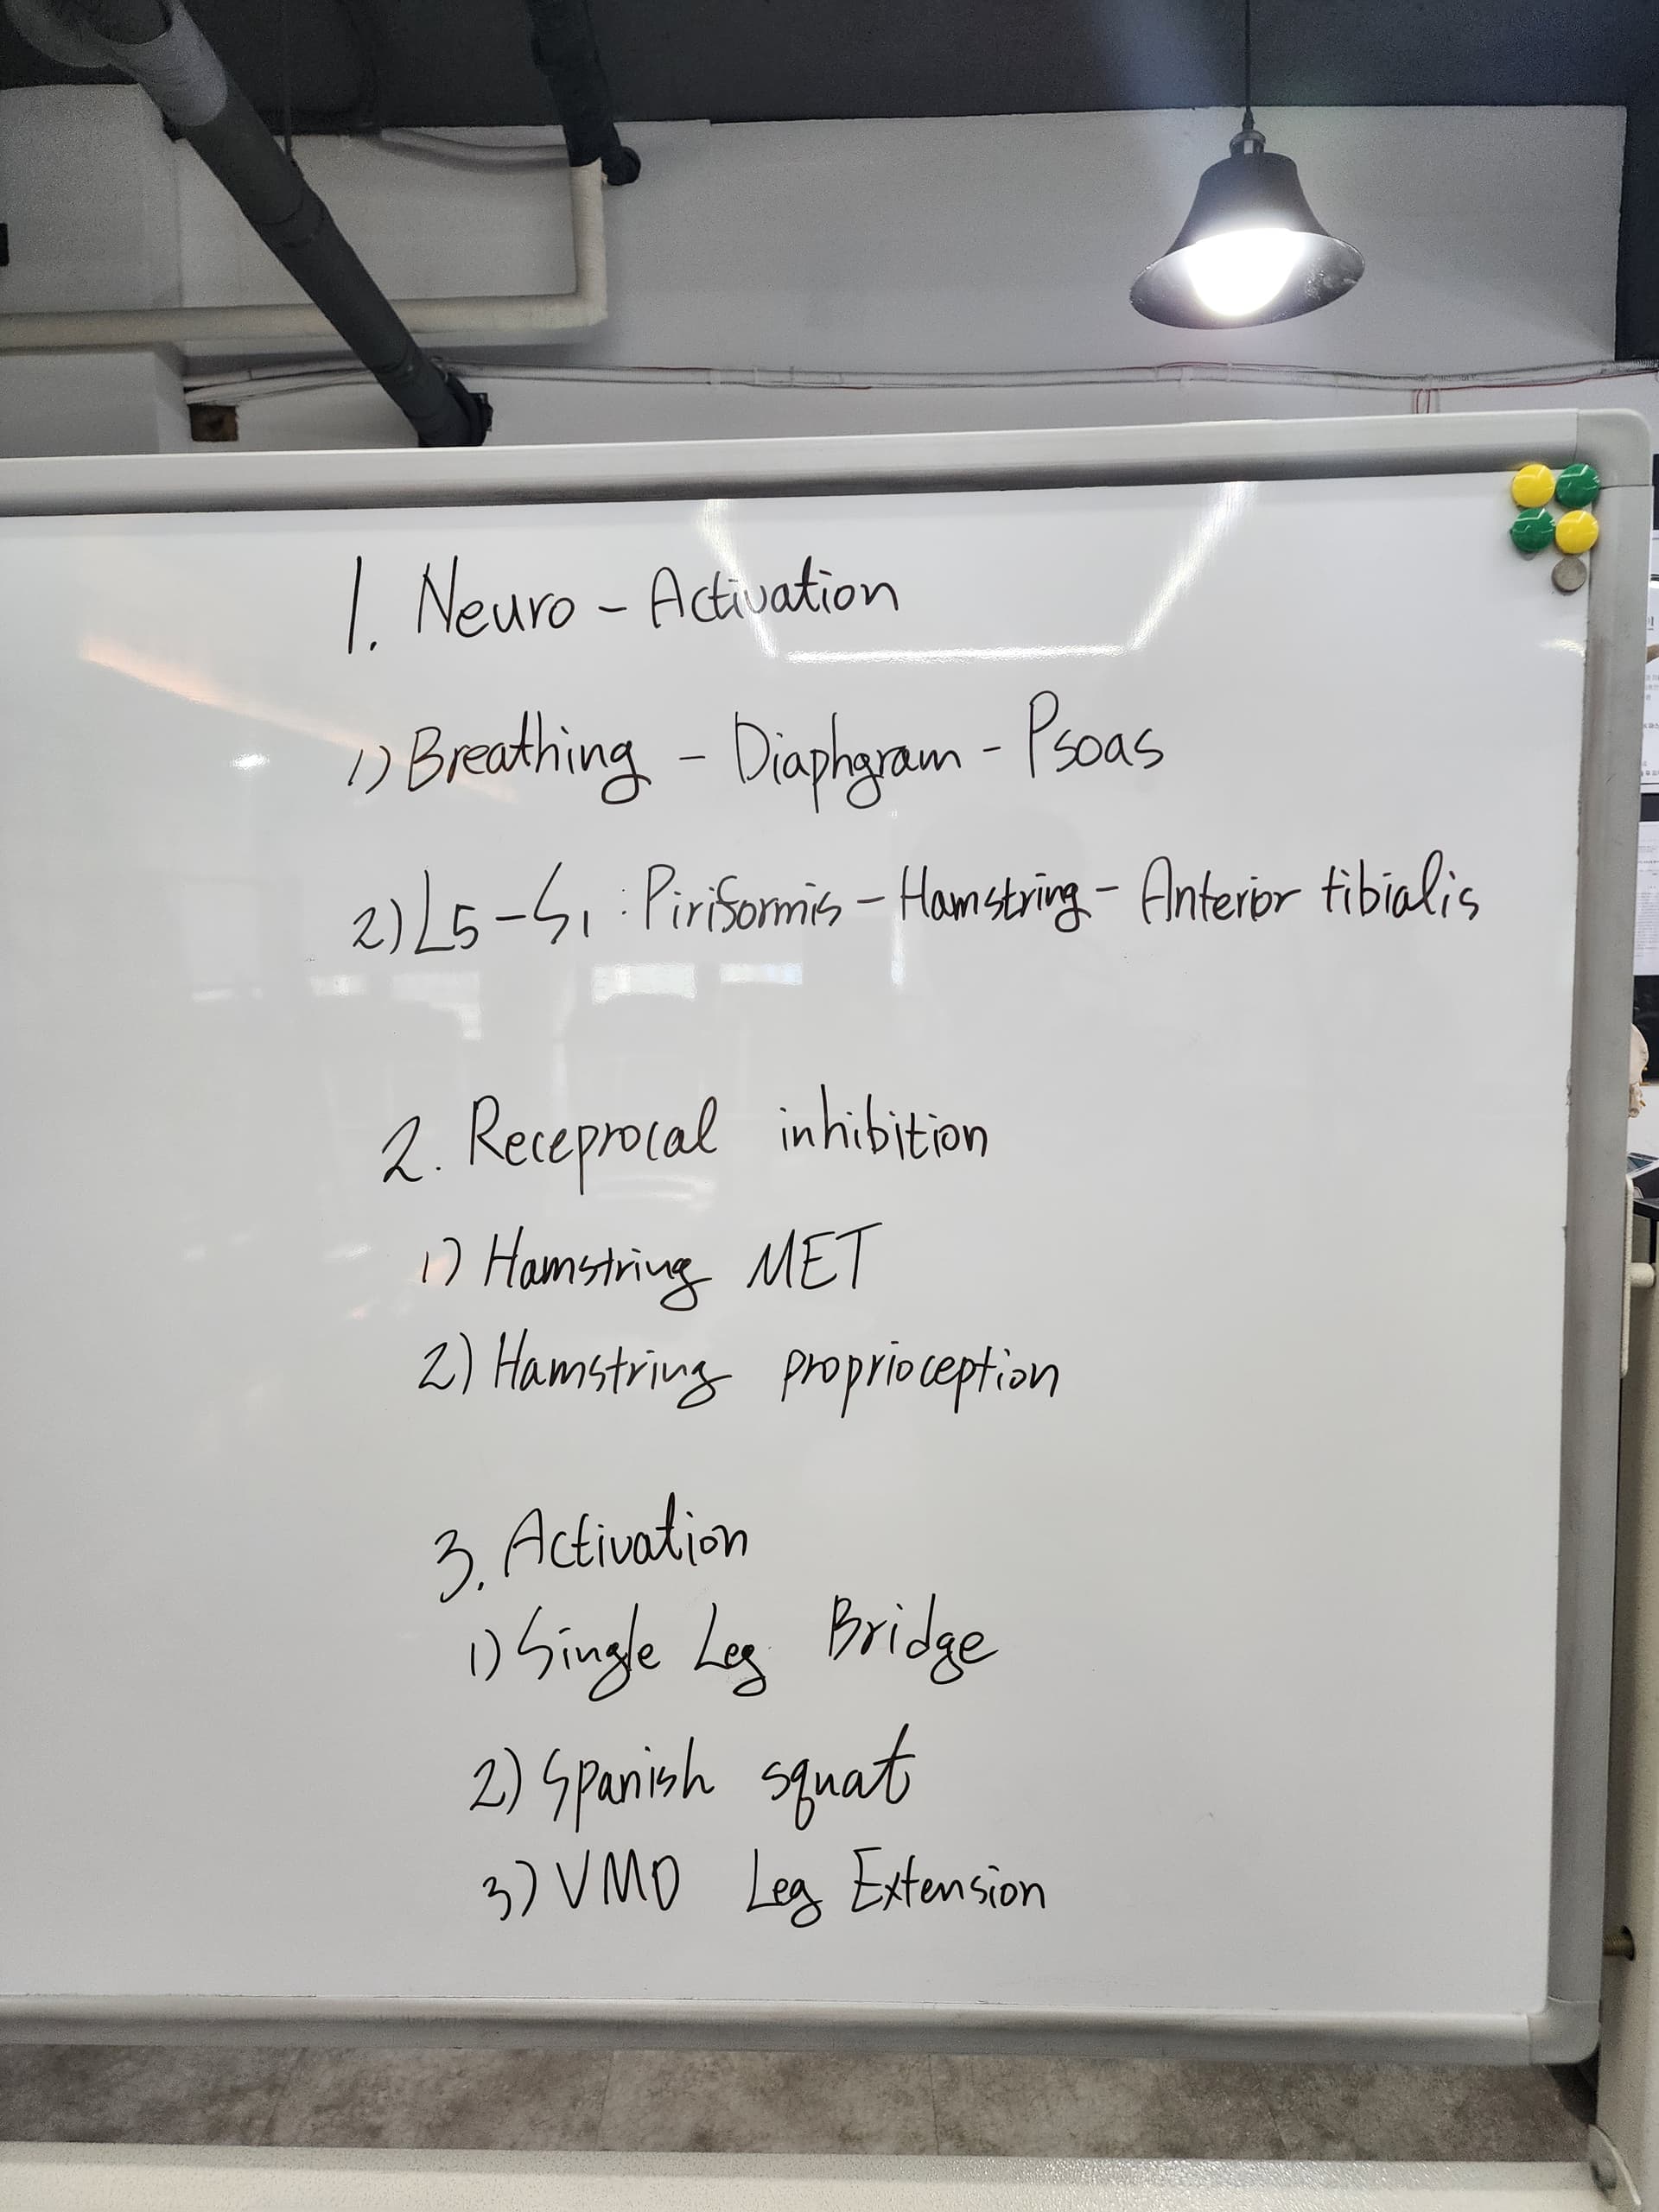 1. Neuro - Activation
1) Breathing - Diaphgram - Psoas
2) L5 - S1 : Piriformis - Hamstring - Anterior tibialis
2. Receprocal inhibition
1) Hamstring MET
2) Hamstring proprioception
3. Activation
1) Single Leg Bridge
2) Spanish squat
3) VMO Leg Extension